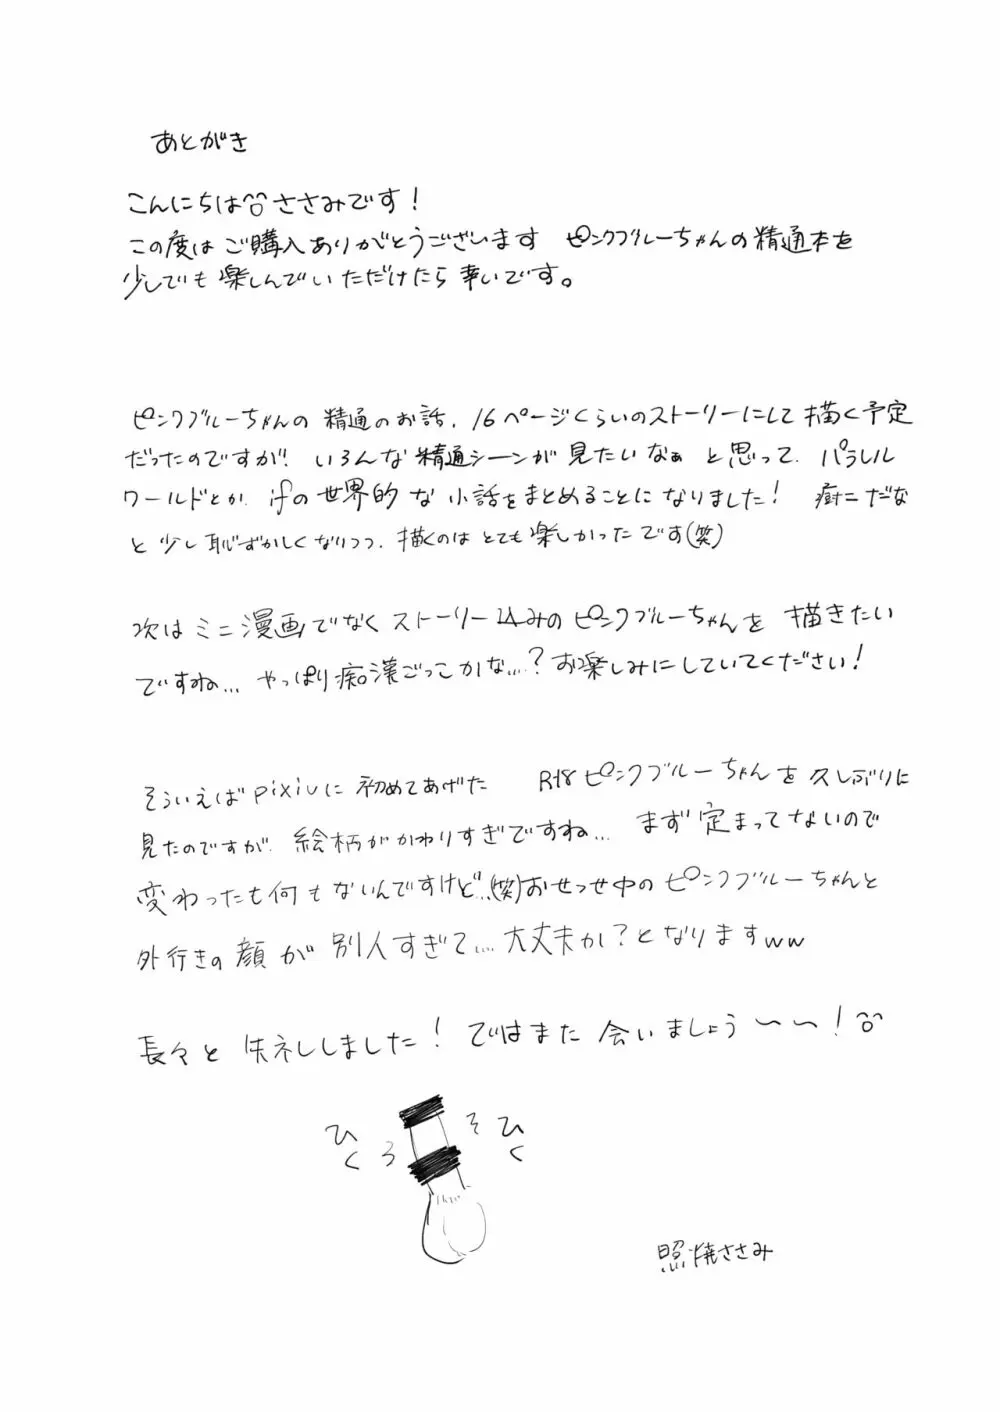 あとがき
こんにちは ささみです！
この度はご購入ありがとうございます ピンクブルーちゃんの精通本を
少しでも楽しんでいただけたら幸いです。
ピンクブルーちゃんの精通のお話、16ページくらいのストーリーにして描く予定
だったのですが、いろんな精通シーンが見たいなぁと思って、パラレル
ワールドとか、ifの世界的な小話をまとめることになりました！ 厨二だな
と少し恥ずかしくなりつつ、描くのはとても楽しかったです(笑)
次はミニ漫画でなくストーリー込みのピンクブルーちゃんを描きたい
ですね… やっぱり痴漢ごっこかな…？お楽しみにしていてください！
そういえばpixivに初めてあげた R18ピンクブルーちゃんを久しぶりに
見たのですが、絵柄がかわりすぎですね… まず定まってないので
変わったも何もないんですけど…(笑)おせっせ中のピンクブルーちゃんと
外行きの顔が別人すぎて…大丈夫か？となりますww
長々と失礼しました！ではまた会いましょう〜〜！
ひくひく
そろ
照焼ささみ